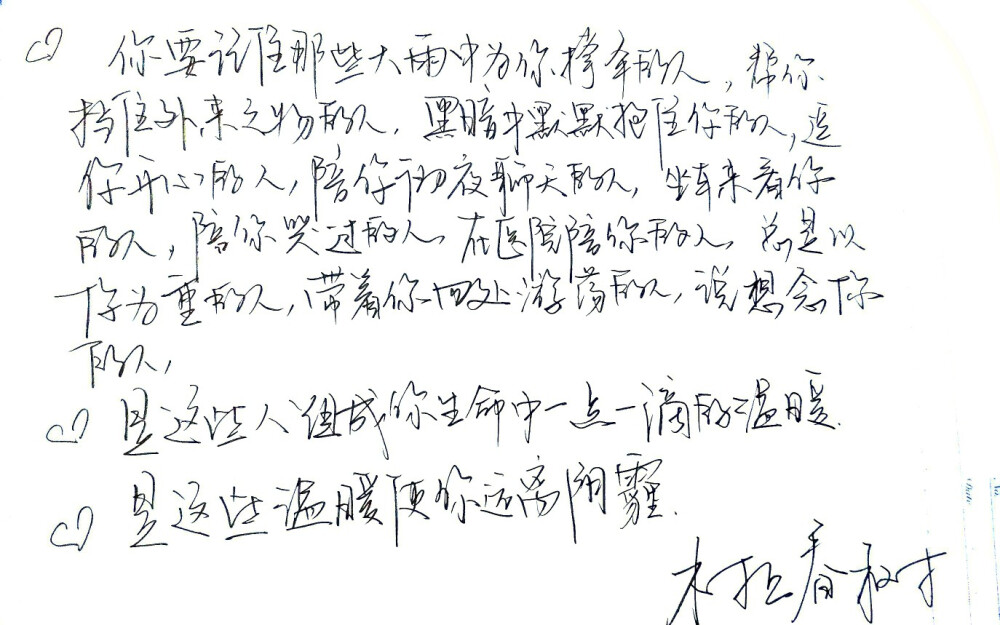 你要记住那些大雨中为你撑伞的人,帮你
挡住外来之物的人,黑暗中默默抱住你的人,逗
你开心的人,陪你彻夜聊天的人,坐车来看你
的人,陪你哭过的人,在医院陪你的人,总是以
你为重的人,带着你四处游荡的人,说想念你
的人,
是这些人组成你生命中一点一滴的温暖.
是这些温暖使你远离阴霾.
村上春树